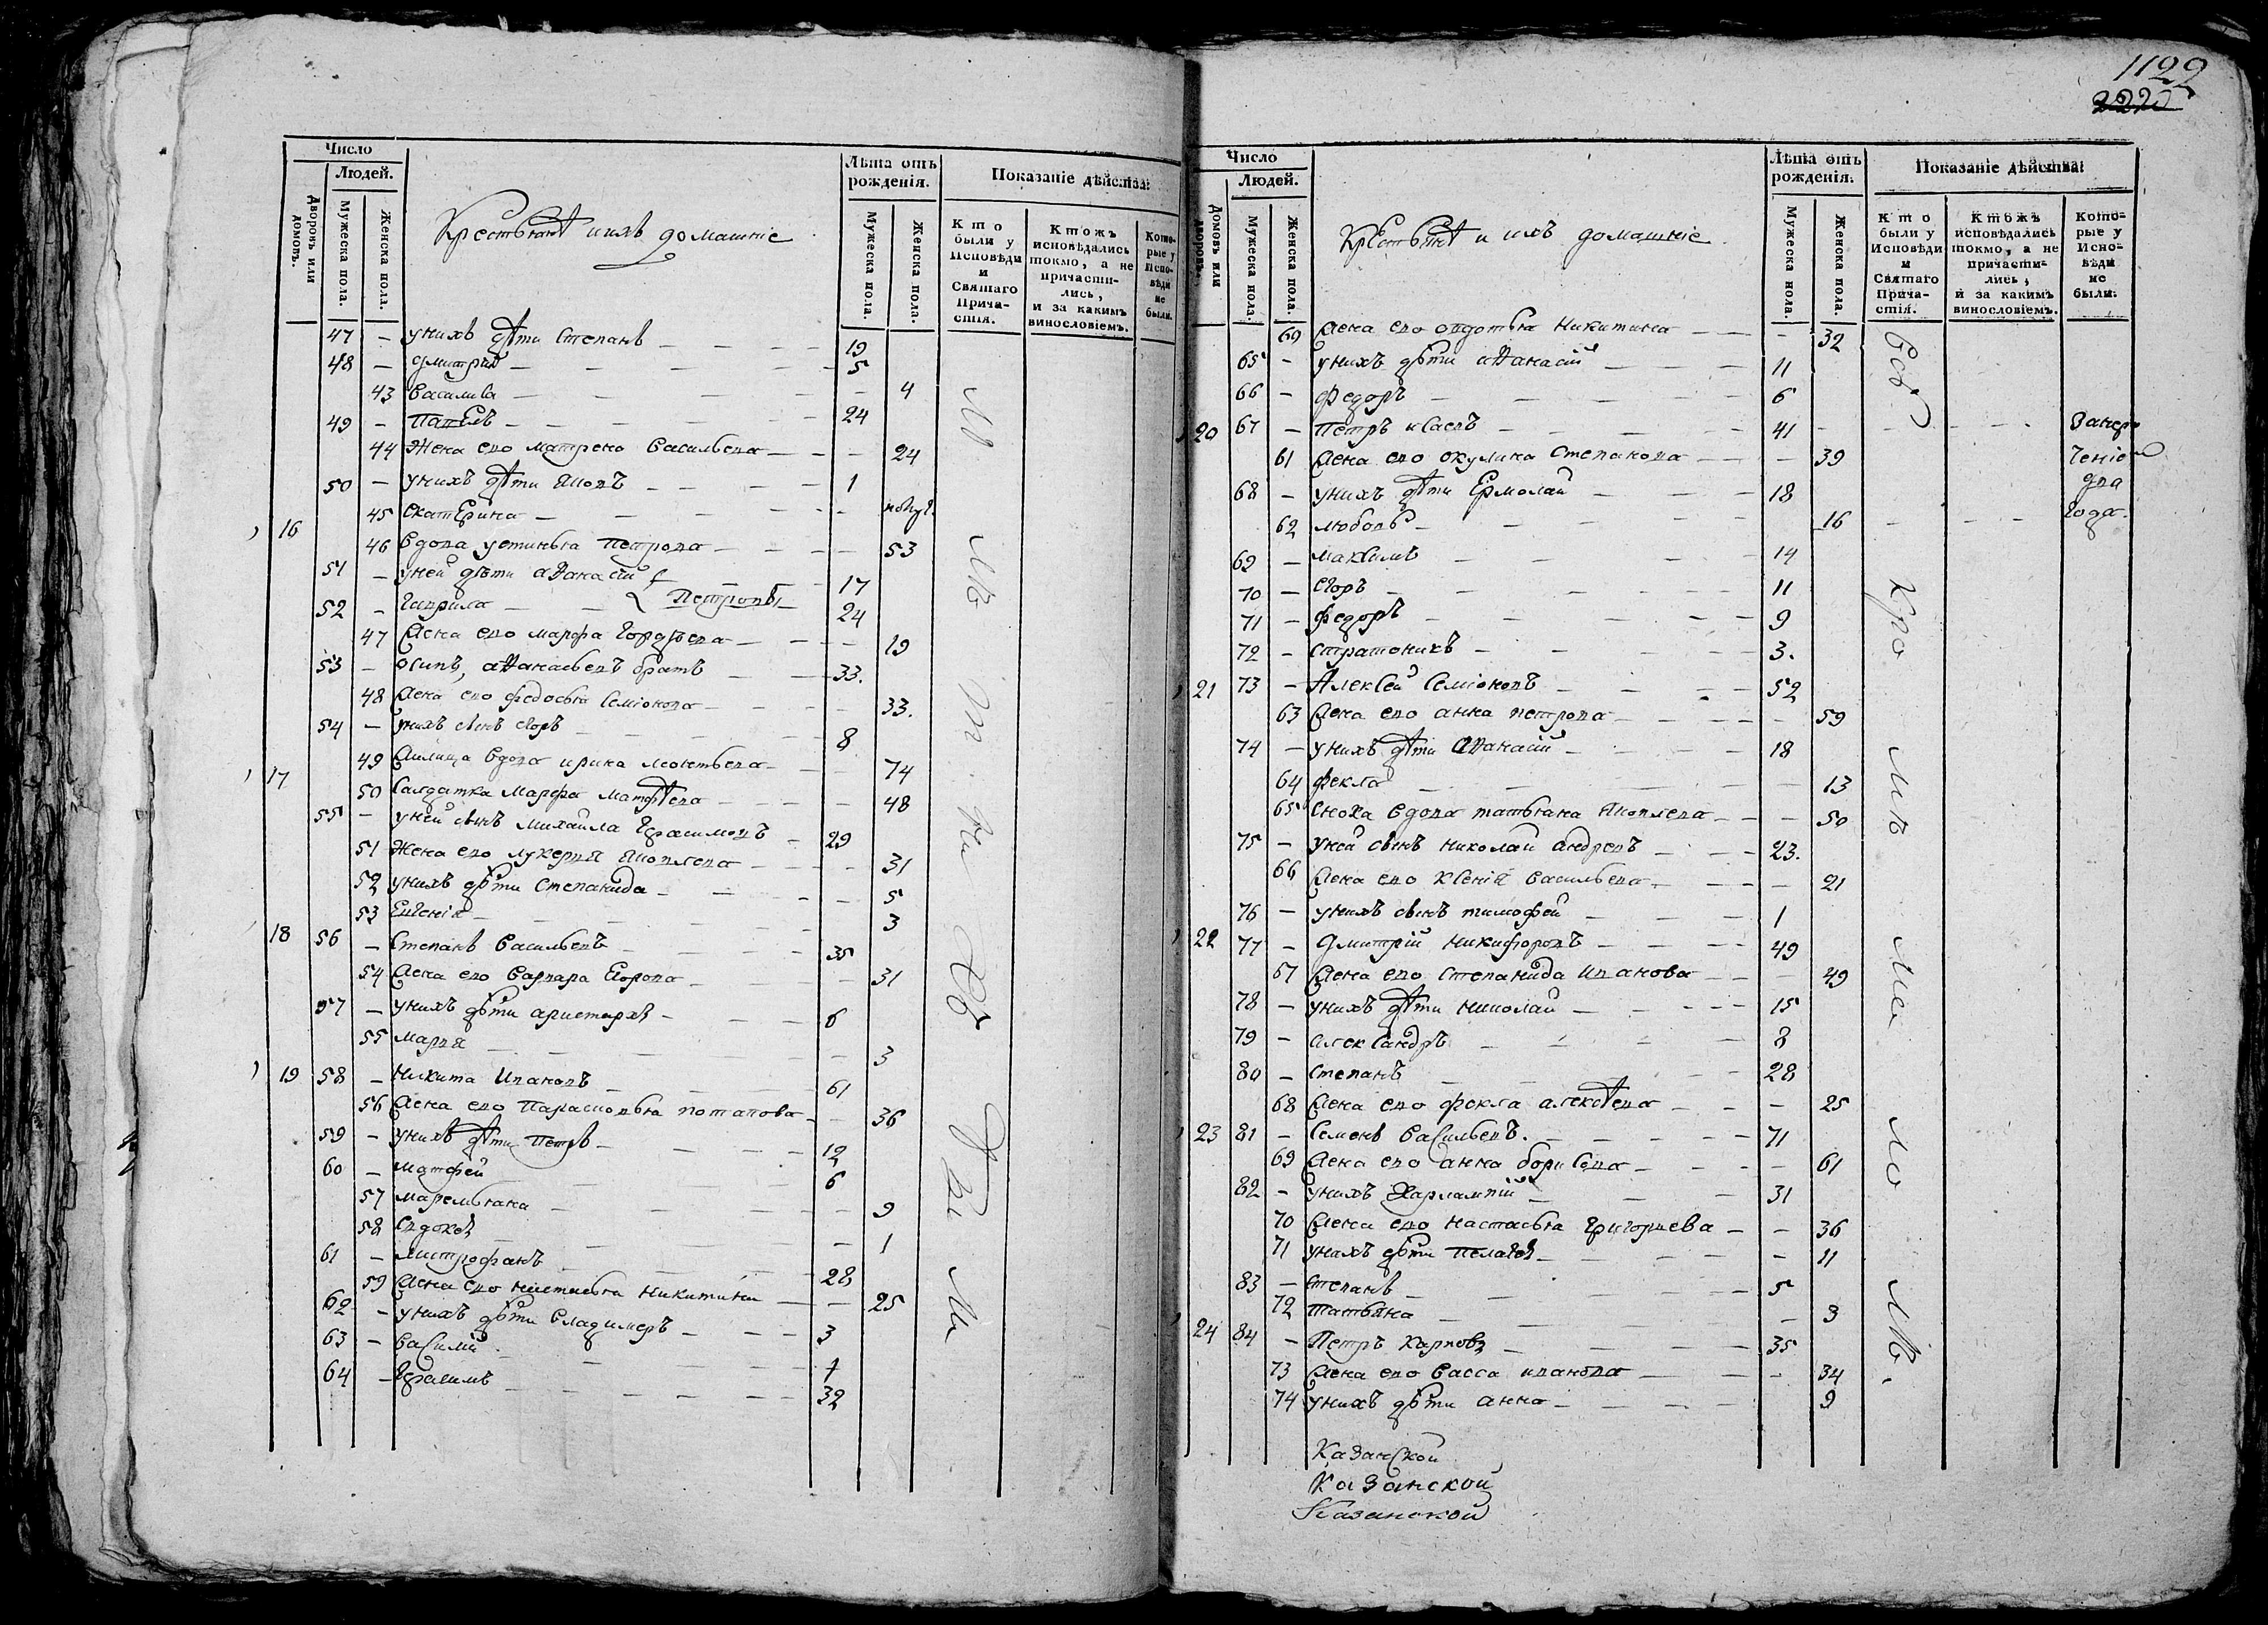 1122
2220
Число
Людей.
Дворовъ или домовъ.
Мужеска пола.
Женска пола.
Крестьянѣ и ихъ домашніе
Лѣта отъ рожденія.
Мужеска пола.
Женска пола.
Показаніе дѣйства:
Кто были у Исповѣди и Святаго Причастія.
Ктожъ исповѣдались токмо, а не причастились, и за какимъ винословіемъ.
Которые у Исповѣди не были.
47 — унихъ дѣти Степанъ — 19
48 — дмитрій — 5
43 василиса — 4
49 — Павелъ — 24
44 Жена ево матрена васильева — 24
50 — унихъ дѣти Яковъ — 1
45 екатерина —
16 46 вдова устинья Петрова — 53
51 — уней дѣти аѳанасій — 17
52 — гаврила — Петровы 24
47 жена ево марфа гордѣева — 19
53 — осипъ, аѳанасьевъ братъ — 33.
48 жена ево федосья семіонова — 33.
54 — унихъ сынъ егоръ — 8
49 вдова ирина леонтьева — 74
17 50 салдатка марфа матѳѣева — 48
55 — уней сынъ михайла Герасимовъ — 29
51 Жена ево лукерья Яковлева — 31
52 унихъ дѣти степанида — 5
53 Евгенія — 3
18 56 — Степанъ Васильевъ — 35
54 жена ево варвара Егорова — 31
57 — унихъ дѣти аристархъ — 6
55 марья — 3
19 58 — Никита Ивановъ — 61
56 жена ево Парасковья потапова — 36
59 — унихъ дѣти Петръ — 12
60 — матфей — 6
57 маремьяна — 9
58 евдокея — 1
61 — митрофанъ — 28
59 жена ево настасья никитина — 25
62 — унихъ дѣти владимеръ — 3
63 — василий — 1
64 — Герасимъ — 32
Число
Людей.
Домовъ или дворовъ.
Мужеска пола.
Женска пола.
Крестьянѣ и ихъ домашніе
Лѣта отъ рожденія.
Мужеска пола.
Женска пола.
Показаніе дѣйства:
Кто были у Исповѣди и Святаго Причастія.
Ктожъ исповѣдались токмо, а не причастились, и за какимъ винословіемъ.
Которые у Исповѣди не были.
60 жена ево авдотья никитина — 32
65 — унихъ дѣти аѳанасій — 11
66 — федоръ — 6
20 67 — Петръ исаевъ — 41
61 жена ево окулина степанова — 39
68 — унихъ дѣти Ермолай — 18
62 любовь — 16
69 — максимъ — 14
70 — егоръ — 11
71 — федоръ — 9
72 — стратоникъ — 3.
21 73 — Алексей семіоновъ — 52
63 жена ево анна петрова — 59
74 — унихъ дѣти аѳанасій — 18
64 фекла — 13
65 сноха вдова татьяна Яковлева — 50
75 — уней сынъ николай андреевъ — 23.
66 жена ево ксенія васильева — 21
76 — унихъ сынъ тимофей — 1
22 77 — Дмитрій никифоровъ — 49
67 жена ево степанида иванова — 49
78 — унихъ дѣти николай — 15
79 — александръ — 8
80 — степанъ — 28
68 жена ево фекла алексѣева — 25
23 81 — семенъ васильевъ. — 71
69 жена ево анна борисова — 61
82 — унихъ Харлампій — 31
70 жена ево настасья григорьева — 36
71 унихъ дѣти пелагея — 11
83 — степанъ — 5
72 татьяна — 3
24 84 — Петръ карповъ — 35
73 жена ево васса иванова — 34
74 унихъ дѣти анна — 9
два
года
Казанской
Казанской
Казанской